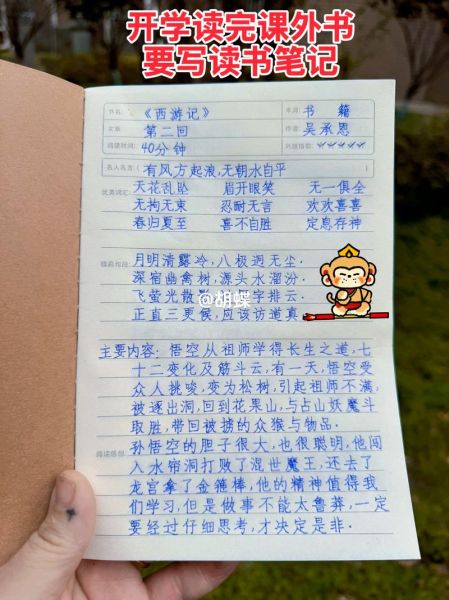 开学读完课外书
要写读书笔记
书名: 《西游记》 本源: 书 籍
文章: 第二回 作者: 吴承恩
阅读时间: 40分钟
名人名言: 有风方起浪,无朝水自平
优美词汇: 天花乱坠 眉开眼笑 无一俱全
无拘无束 忍耐无言 欢欢喜喜
春归夏至 喜不自胜 定息存神
精彩句段: 月明清露冷,八极迥无尘.
深宿幽禽树,源头水溜汾.
飞萤光散影 字排云.
正直三更候,应该访道真
@胡蝶
主要内容: 悟空从祖师学得长生之道,七
十二变化及筋斗云,有一天,悟空受
众人挑唆,变为松树,引起祖师不满,
被逐出洞,回到花果山,与占山妖魔斗
取胜,带回被掳的众猴与物品.
阅读感想: 孙悟空的胆子很大,也很聪明,他闯
入水帘洞打败了混世魔王,还去了
龙宫拿了金箍棒,他的精神值得我
们学习,但是做事不能太鲁莽,一定
要经过仔细思考,才决定是非.